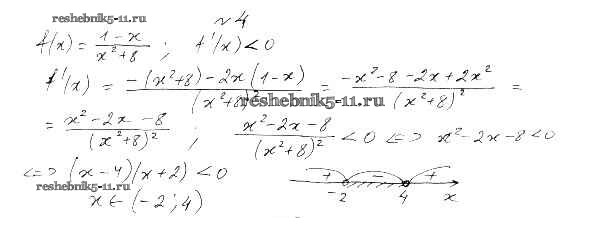 reshebnik5-11.ru
№4
f(x) = (1-x)/(x²+8) ; f'(x) < 0
f'(x) = (-(x²+8) - 2x(1-x))/(x²+8)² = (-x²-8-2x+2x²)/(x²+8)² =
reshebnik5-11.ru
= (x²-2x-8)/(x²+8)² ; (x²-2x-8)/(x²+8)² < 0 <=> x²-2x-8 < 0
<=> (x-4)(x+2) < 0
+ - +
reshebnik5-11.ru
-2 4 x
x ∈ (-2; 4)